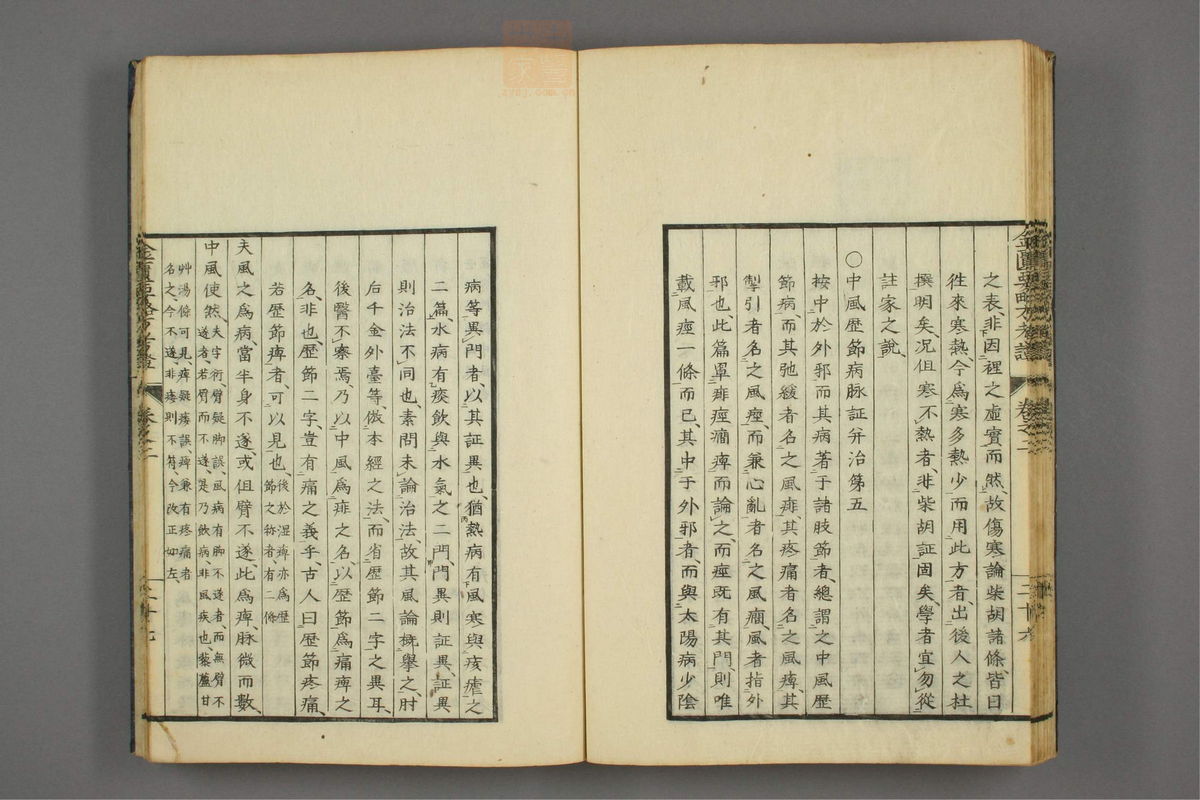 之表、非因裡之虛實而然、故傷寒論柴胡諸條、皆曰
徃來寒熱、今爲寒多熱少、而用此方者、出後人之杜
撰明矣、况但寒不熱者、非柴胡証固矣、學者宜勿從
註家之說、
〇中風歷節病脉証并治第五
按中於外邪而其病著于諸肢節者、總謂之中風歷
節病、而其弛緩者名之風痱、其疼痛者名之風痺、其
掣引者名之風痙、而兼心亂者名之風癎、風者指外
邪也、此篇單痱痙癎痺而論之、而痙既有其門、則唯
載風痙一條而已、其中于外邪者、而與太陽病少陰
病等異門者、以其証異也、猶熱病有風寒與痎瘧之
二篇、水病有痰飲與水氣之二門、門異則証異、証異
則治法不同也、素問未論治法、故其風論概擧之、肘
后千金外臺等、倣本經之法、而省歷節二字之異耳、
後醫不察焉、乃以中風爲痱之名、以歷節爲痛痺之
名、非也、歷節二字、豈有痛之義乎、古人曰歷節疼痛、
若歷節痺者、可以見也、後於湿痺亦爲歷
節之称者、有二條
夫風之爲病、當半身不遂、或但臂不遂、此爲痺、脉微而數、
中風使然、夫字衍、臂疑脚誤、風病有脚不遂者、而無臂不
遂者、若臂而不遂、是乃飲病、非風疾也、藜蘆甘
艸湯條可見、痺疑痿誤、痺兼有疼痛者
名之、今不遂、非痿則不符、今改正如左、
卷之二
二十六
卷之二
二十七